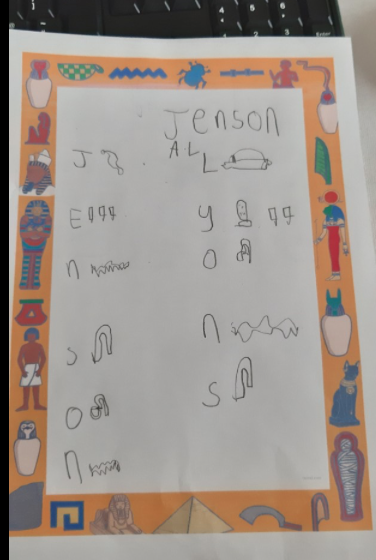 Jenson
A.L
J
E
n
s
o
n
L
y
o
n
s